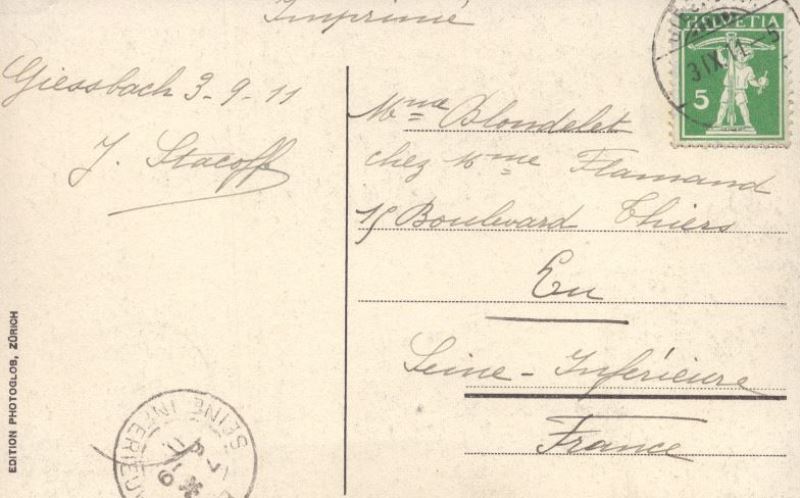 Imprimé
Giessbach 3-9-11
J. Stacoff
Mme Blondelet
chez Mme Flamand
15 Boulevard Thiers
Eu
Seine-Inférieure
France
HELVETIA
5
3 IX 11 - 5
EDITION PHOTOGLOB, ZÜRICH
SEINE INFERIEU